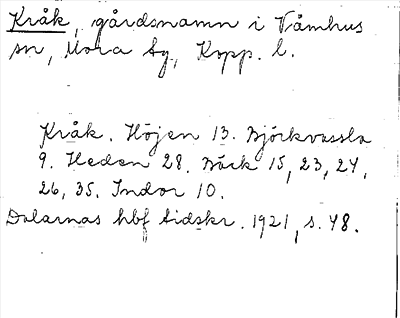 Kråk, gårdsnamn i Våmhus
sn, Mora tg, Kopp. l.
Kråk. Höjen 13. Björkvassla
9. Heden 28. Bäck 15, 23, 24,
26, 35. Indor 10.
Dalarnas hbf tidskr. 1921, s. 48.